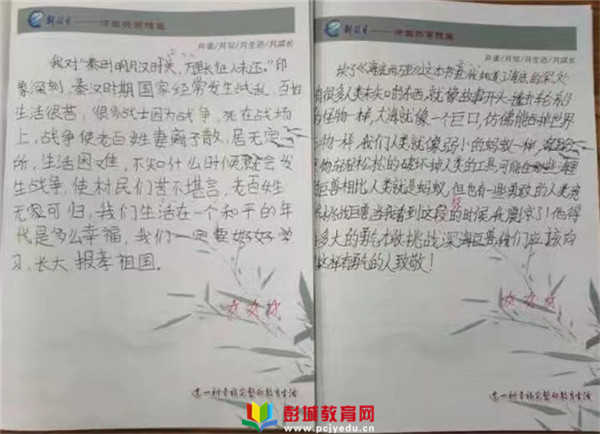 共读/共写/共生活/共成长
我对“秦时明月汉时关，万里长征人未还。”印
象深刻，秦汉时期国家经常发生战乱，百姓
生活很苦，很多战士因为战争，死在战场
上，战争使老百姓妻离子散，居无定
所，生活困难，不知什么时候就会发
生战争，使村民们苦不堪言，老百姓
无家可归，我们生活在一个和平的年
代是多么幸福，我们一定要好好学
习，长大报孝祖国。
过一种幸福完整的教育生活
共读/共写/共生活/共成长
读了《海底两万里》这本书
很多人类未知的东西，就像故事开头撞击轮船
的怪物一样，大海就像一个巨口，仿佛能吞掉世界
物一样，我们人类就像弱小的蚂蚁一样
轻轻松松的破坏掉人类的工具，可能在
巨兽相比人类就是蚂蚁，但也有一些勇敢的人类
挑战巨兽当我看到这段的时候，我震惊了！他得
多大的勇气敢挑战深海巨兽我们应该向
这样有勇气的人致敬！
过一种幸福完整的教育生活
彭城教育网
www.pcjyedu.cn